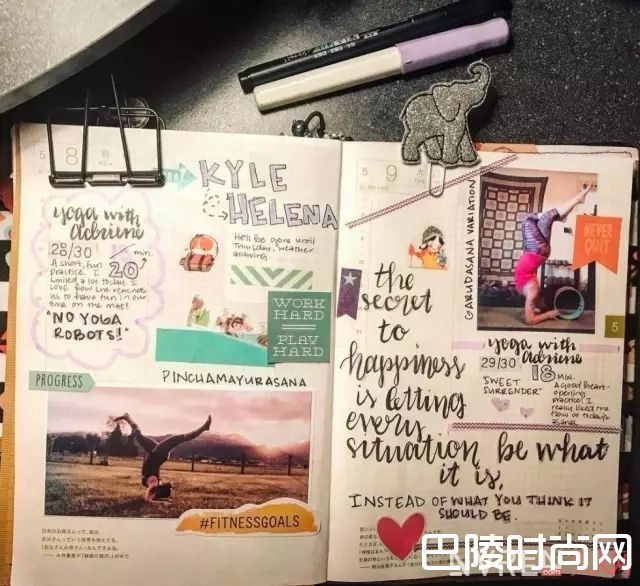 5
8
月
MON
DAY
KYLE
HELENA
He'll be gone until
Thursday, weather
allowing.
yoga with
adriene
28/30
min.
20
A short, fun
practice. I
smiled a lot today. I
love how she reminds
us to have fun in our
time on the mat!
"NO YOGA
ROBOTS!"
WORK
HARD
PLAY
HARD
PROGRESS
PINCHAMAYURASANA
#FITNESSGOALS
日本のお母さんって、実は
5
9
火
GARUDASANA VARIATION
NEVER
QUIT
5
the
secret
to
happiness
is letting
every
situation be what
it is,
INSTEAD OF WHAT YOU THINK IT
SHOULD BE.
yoga with
adriene
29/30
18 MIN.
"SWEET
SURRENDER"
A good heart-
opening
practice! I
really liked the
flow of today's
asanas.
巴陵时尚网